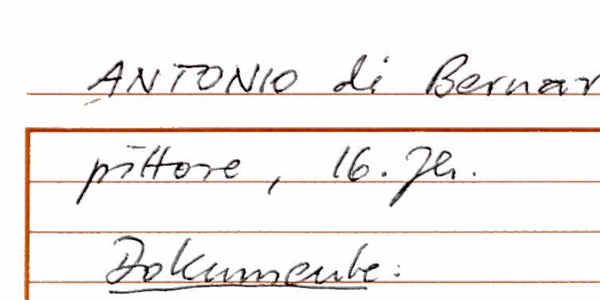 ANTONIO di Bernar
pittore, 16. Jh.
Dokumente: